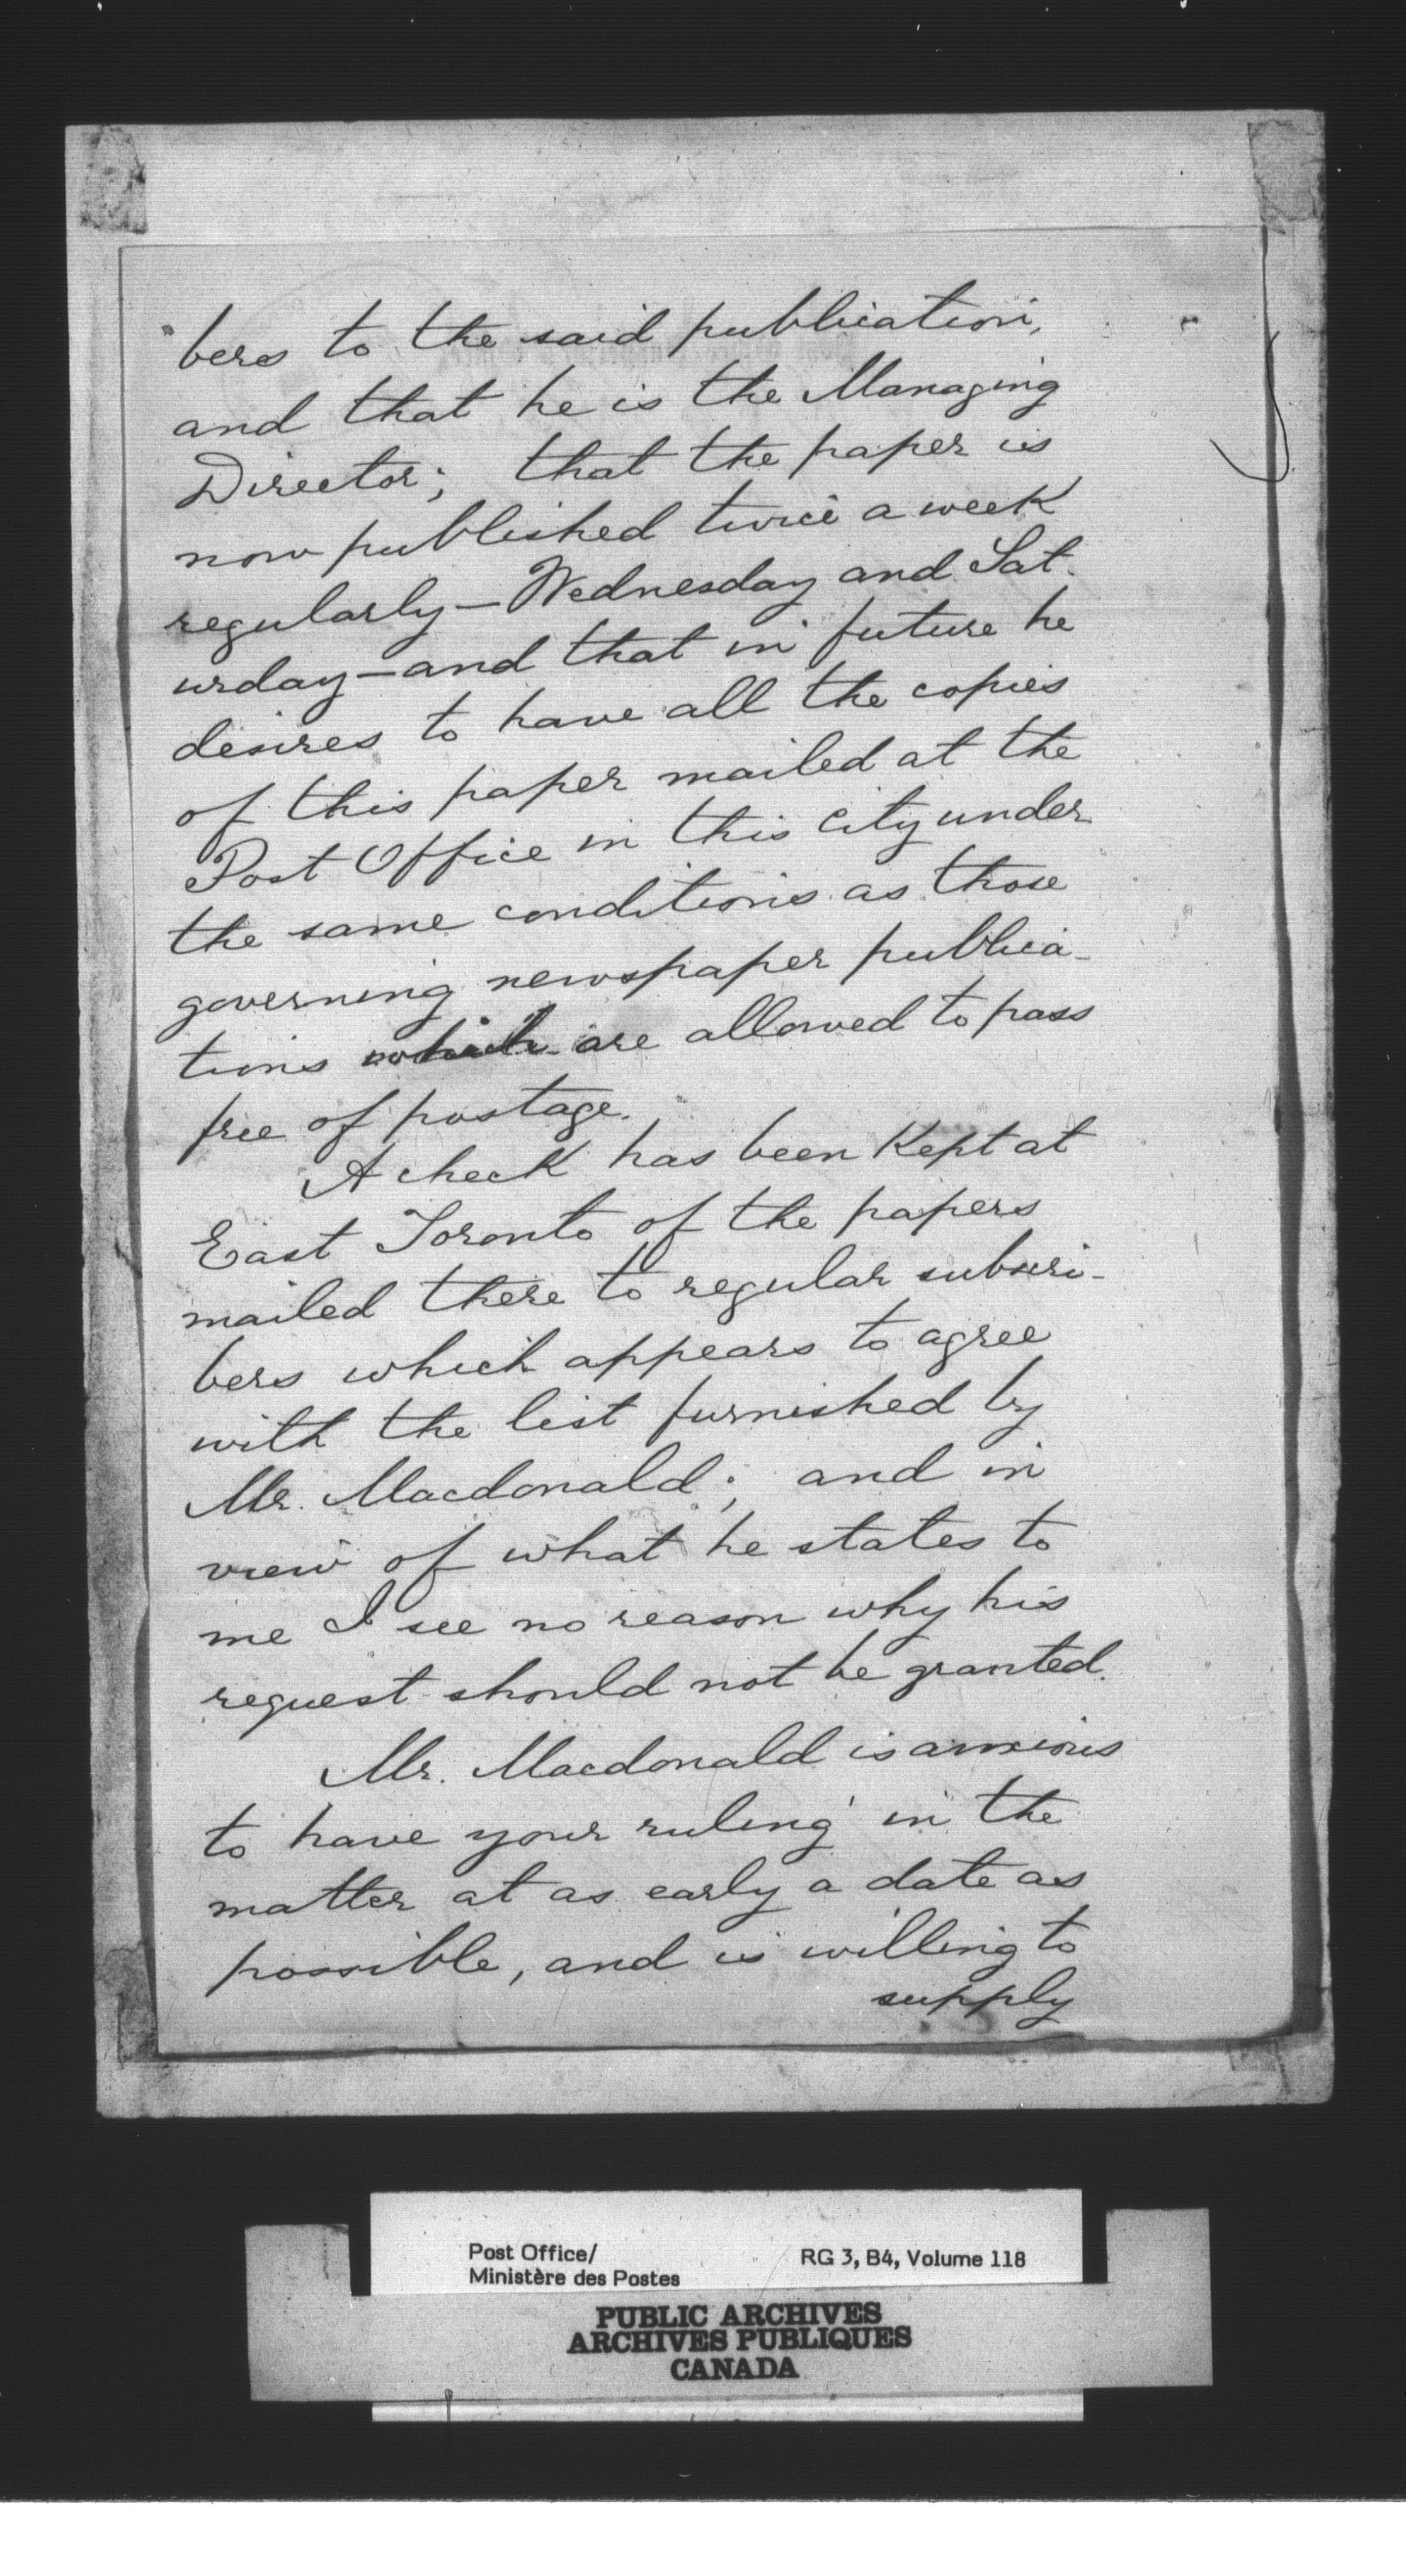 bers to the said publication,
and that he is the Managing
Director; that the paper is
now published twice a week
regularly—Wednesday and Sat-
urday—and that in future he
desires to have all the copies
of this paper mailed at the
Post Office in this City under
the same conditions as those
governing newspaper publica-
tions which are allowed to pass
free of postage.
A check has been Kept at
East Toronto of the papers
mailed there to regular subscri-
bers which appears to agree
with the list furnished by
Mr. Macdonald; and in
view of what he states to
me I see no reason why his
request should not be granted.
Mr. Macdonald is anxious
to have your ruling in the
matter at as early a date as
possible, and is willing to
supply
Post Office/ RG 3, B4, Volume 118
Ministère des Postes
PUBLIC ARCHIVES
ARCHIVES PUBLIQUES
CANADA